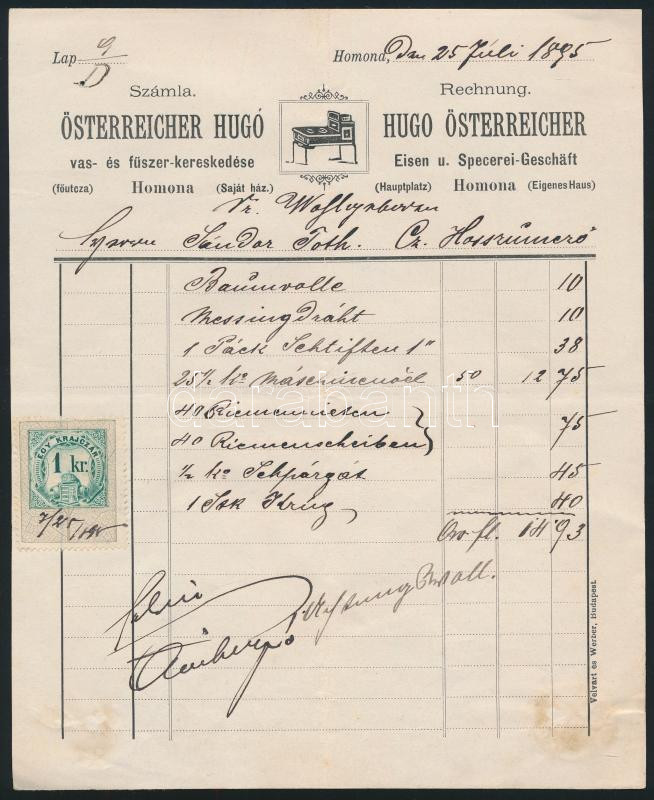 Lap 9/D Homond, den 25 Juli 1895
Számla. Rechnung.
ÖSTERREICHER HUGÓ HUGO ÖSTERREICHER
vas- és fűszer-kereskedése Eisen u. Specerei-Geschäft
(főutcza) Homona (Saját ház.) (Hauptplatz) Homona (Eigenes Haus)
Sr. Wohlgeboren
Herrn Sándor Toth. Cz. Hosszumező
Baumwolle 10
Messing Dráht 10
1 Páck Schtiften 1" 38
25½ ko Máschinenöel 50 12 75
40 Riemennieten
40 Riemenscheiben 75
½ ko Schpárgát 45
1 Stk Krug 40
Öw. fl. 14 93
EGY KRAJCZÁR
1 kr.
7/25/895
Achtungsvoll.
Velvart és Werber, Budapest
darabanth